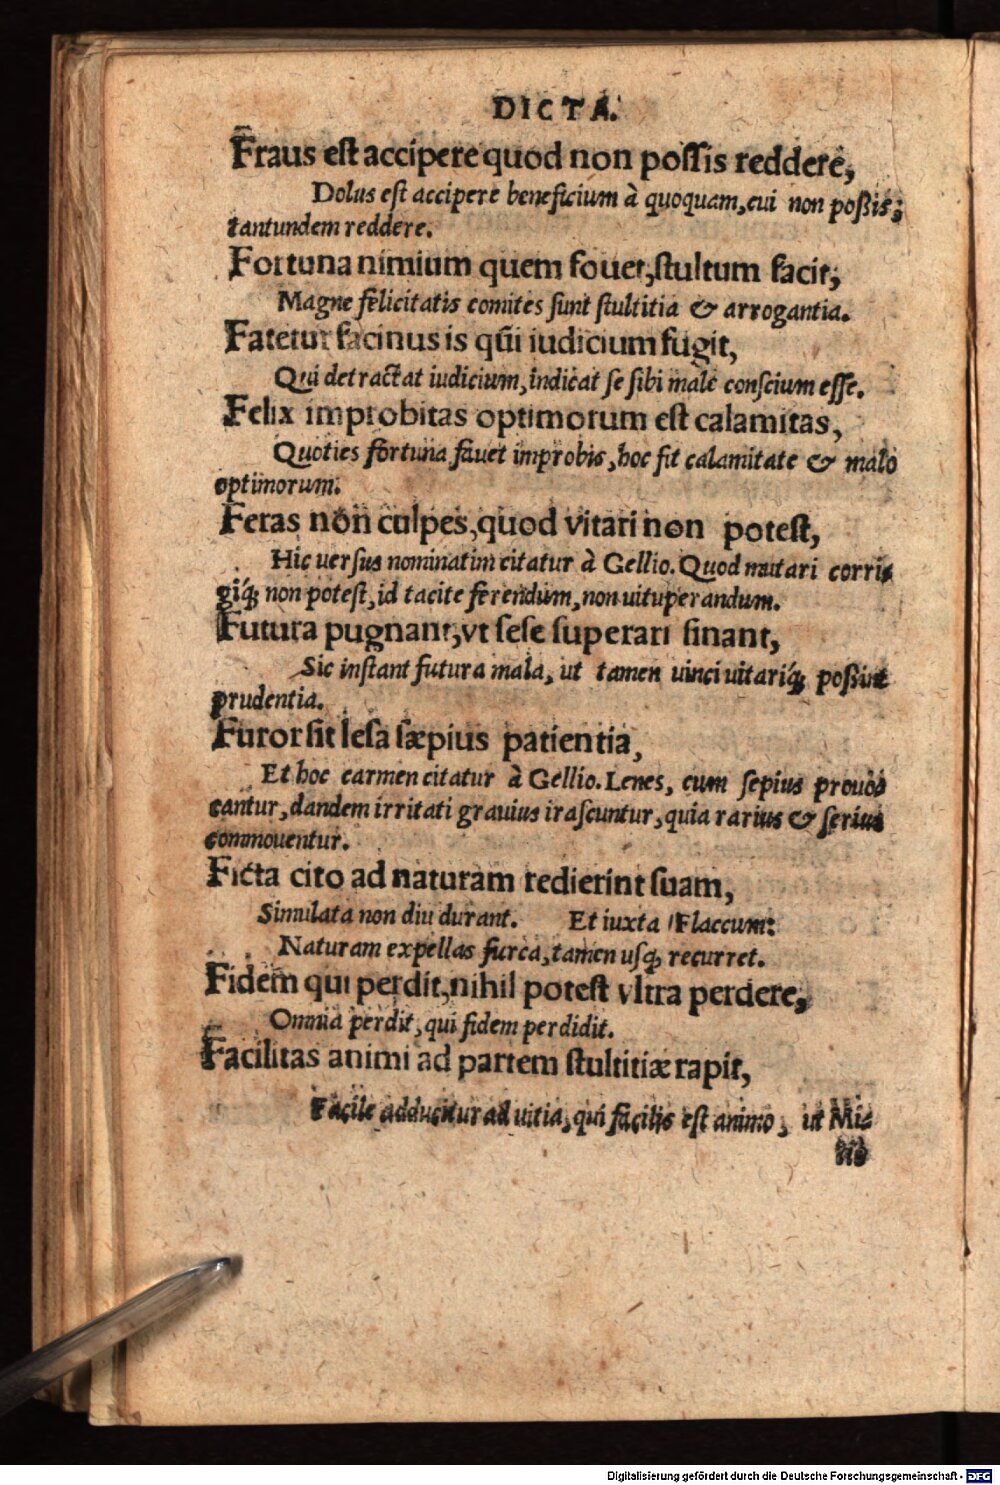 DICTA.
Fraus est accipere quod non possis reddere,
Dolus est accipere beneficium à quoquam, cui non poßis,
tantundem reddere.
Fortuna nimium quem fouet, stultum facit,
Magne felicitatis comites sunt stultitia & arrogantia.
Fatetur facinus is qui iudicium fugit,
Qui detractat iudicium, indicat se sibi male conscium esse.
Felix improbitas optimorum est calamitas,
Quoties fortuna fauet improbis, hoc fit calamitate & malo
optimorum.
Feras non culpes, quod vitari non potest,
Hic uersus nominatim citatur à Gellio. Quod mutari corri-
giq́; non potest, id tacite ferendum, non uituperandum.
Futura pugnant, vt sese superari sinant,
Sic instant futura mala, ut tamen uinci uitariq́; poßint
prudentia.
Furor fit lesa sæpius patientia,
Et hoc carmen citatur à Gellio. Lenes, cum sepius prouo-
cantur, dandem irritati grauius irascuntur, quia rarius & serius
commouentur.
Ficta cito ad naturam redierint suam,
Simulata non diu durant. Et iuxta Flaccum:
Naturam expellas furca, tamen usq; recurret.
Fidem qui perdit, nihil potest vltra perdere,
Omnia perdit, qui fidem perdidit.
Facilitas animi ad partem stultitiæ rapit,
Facile adducitur ad uitia, qui facilis est animo, ut Mi-
Digitalisierung gefördert durch die Deutsche Forschungsgemeinschaft - DFG